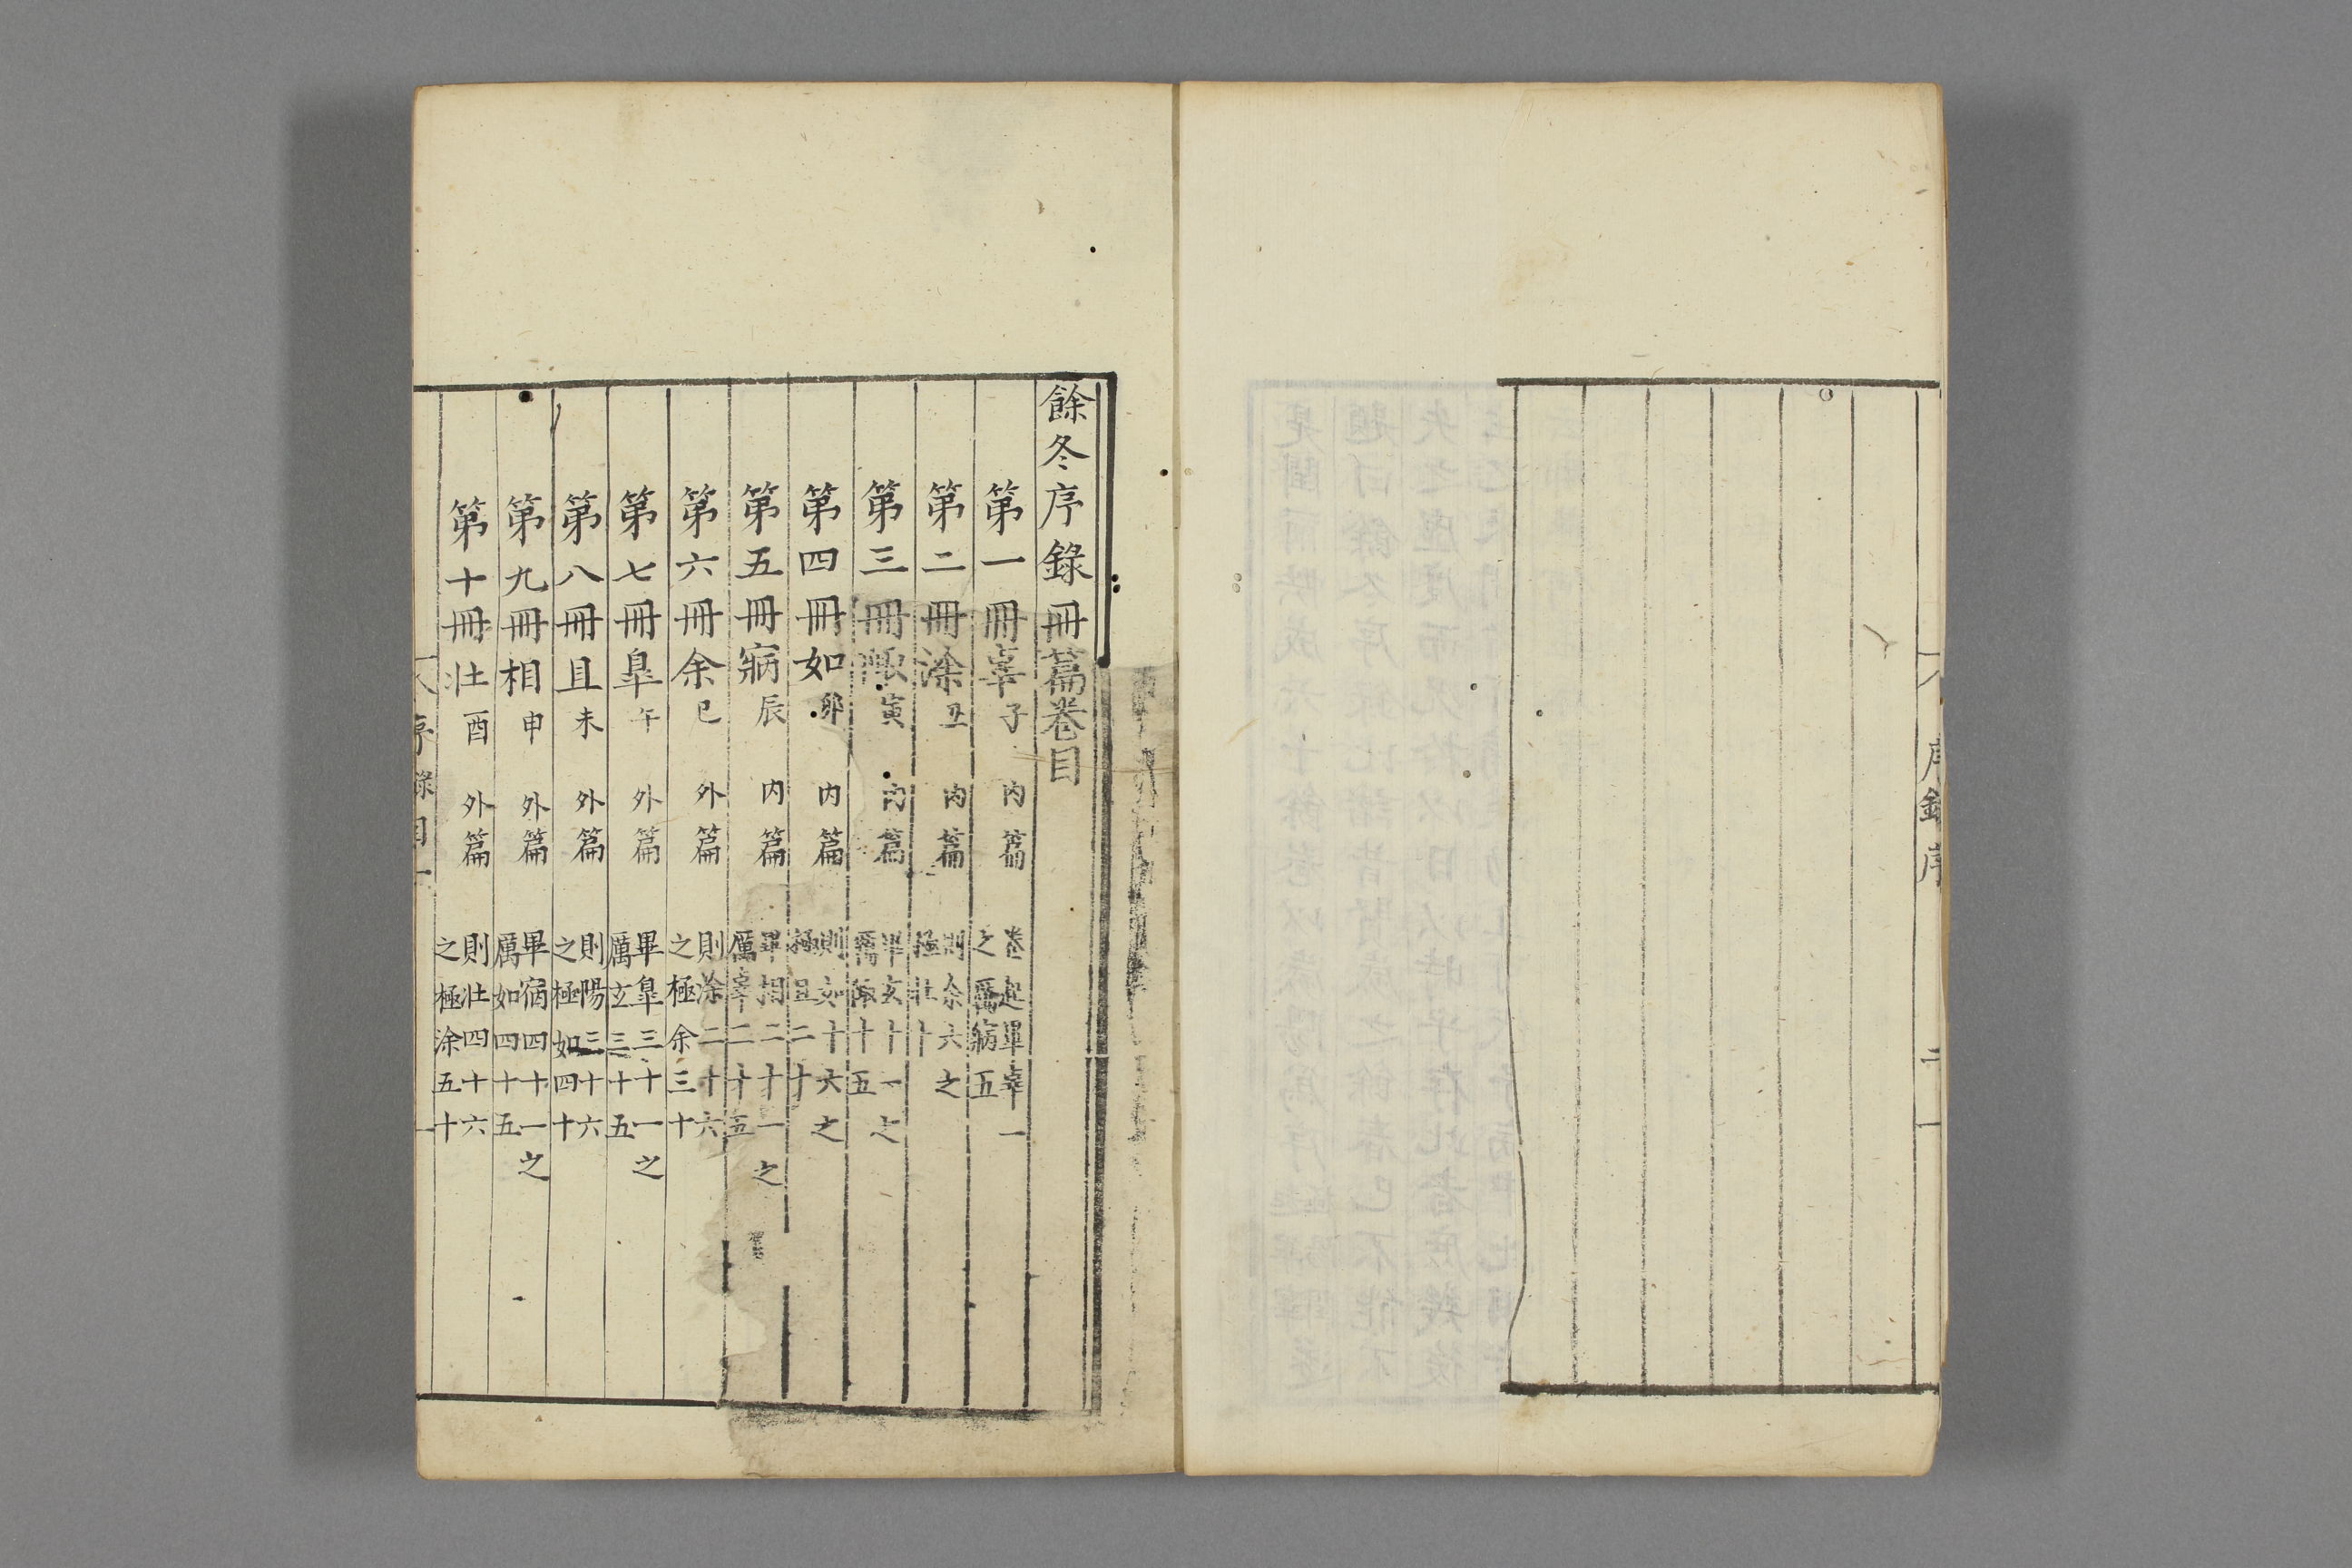 序錄序 二
餘冬序錄冊篇卷目
第一冊辜子 內篇 卷起畢辜一
之厲寎五
第二冊涂丑 內篇 則余六之
極壯十
第三冊陬寅 內篇 畢玄十一之
厲陬十五
第四冊如卯 內篇 則如十六之
極且二十
第五冊寎辰 內篇 畢相二十一之
厲辜二十五
第六冊余巳 外篇 則涂二十六
之極余三十
第七冊皐午 外篇 畢皐三十一之
厲玄三十五
第八冊且未 外篇 則陽三十六
之極如四十
第九冊相申 外篇 畢寎四十一之
厲如四十五
第十冊壯酉 外篇 則壯四十六
之極涂五十
序錄目一